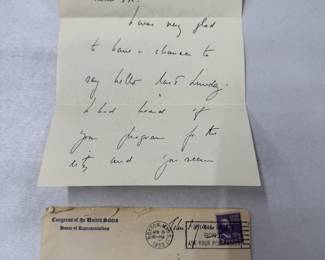 I was very glad
to have a chance to
say hello last Sunday.
I had heard of
your program for the
city and you seem
Congress of the United States
House of Representatives
BOSTON
1952
ASK YOUR POSTMASTER